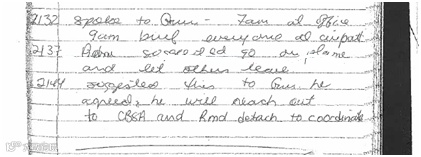 2132 spoke to Gun - 7am at office
9am brief everyone at airport
2137 Adam go on plane
and let others leave
suggested this to Gun he
agreed, he will reach out
to CBSA and Rmd detach to coordinate